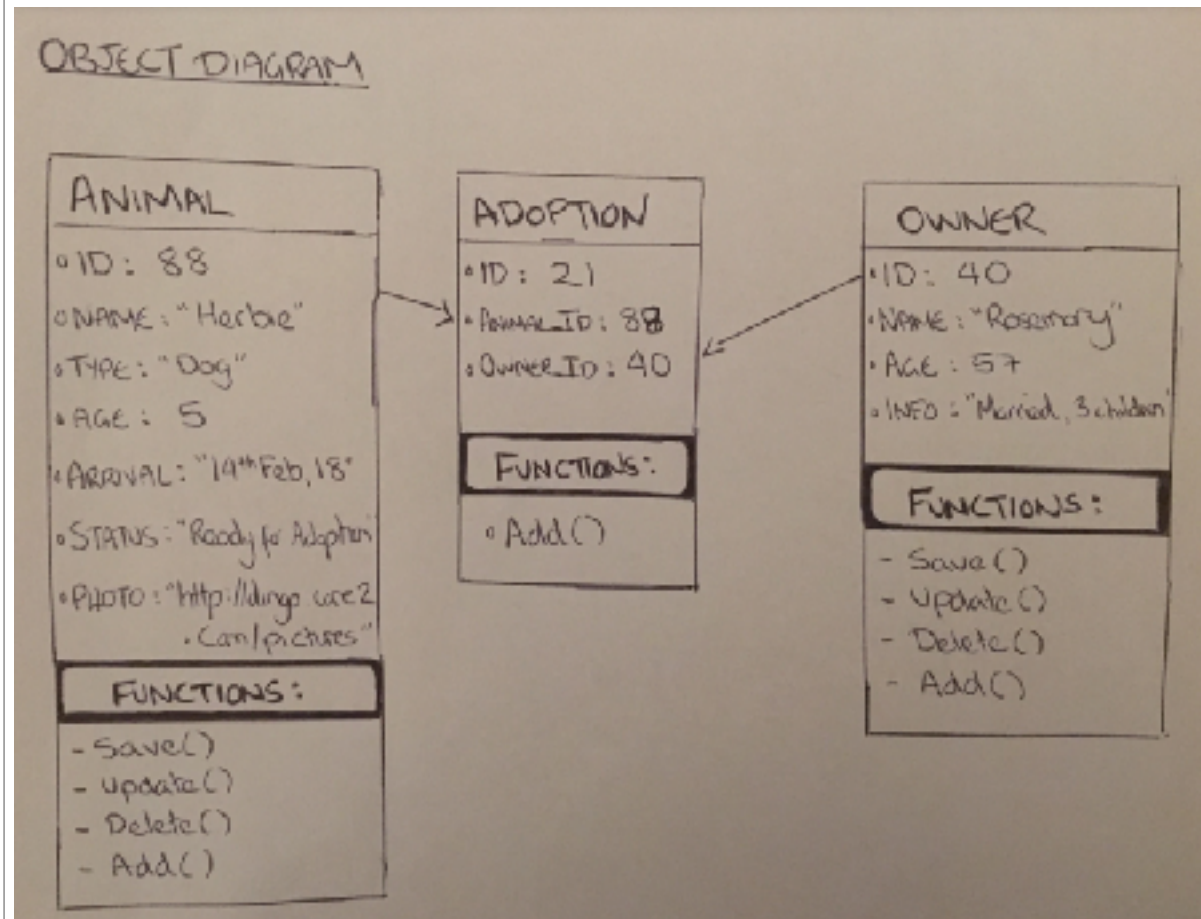 OBJECT DIAGRAM
ANIMAL
ID: 88
NAME: "Herbie"
TYPE: "Dog"
AGE: 5
ARRIVAL: "19th Feb, 18"
STATUS: "Ready for Adoption"
PHOTO: "http://dingo.care2
.com/pictures"
FUNCTIONS:
- Save()
- Update()
- Delete()
- Add()
ADOPTION
ID: 21
ANIMAL_ID: 88
OWNER_ID: 40
FUNCTIONS:
Add()
OWNER
ID: 40
NAME: "Rosemary"
AGE: 57
INFO: "Married, 3 children"
FUNCTIONS:
- Save()
- Update()
- Delete()
- Add()